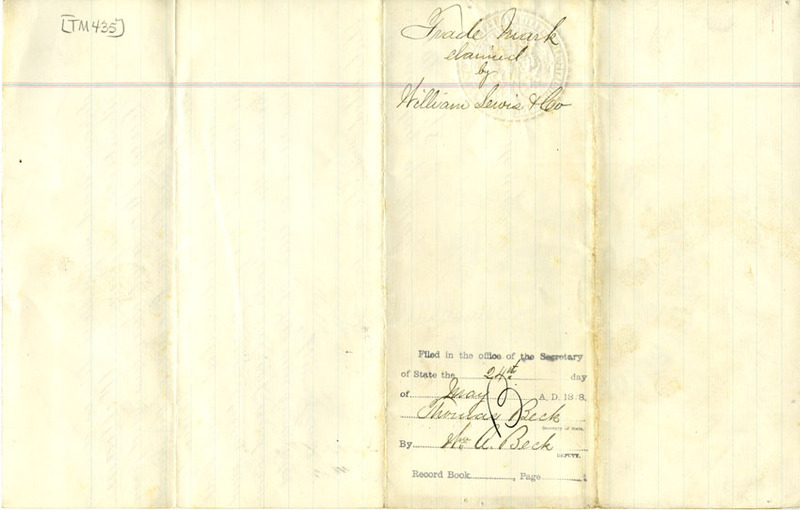 [TM435]
Trade Mark
claimed
by
William Lewis & Co
Filed in the office of the Secretary
of State the 24th. day
of May A. D. 1878,
Thomas Beck
Secretary of State.
By Wm A. Beck
DEPUTY.
Record Book , Page